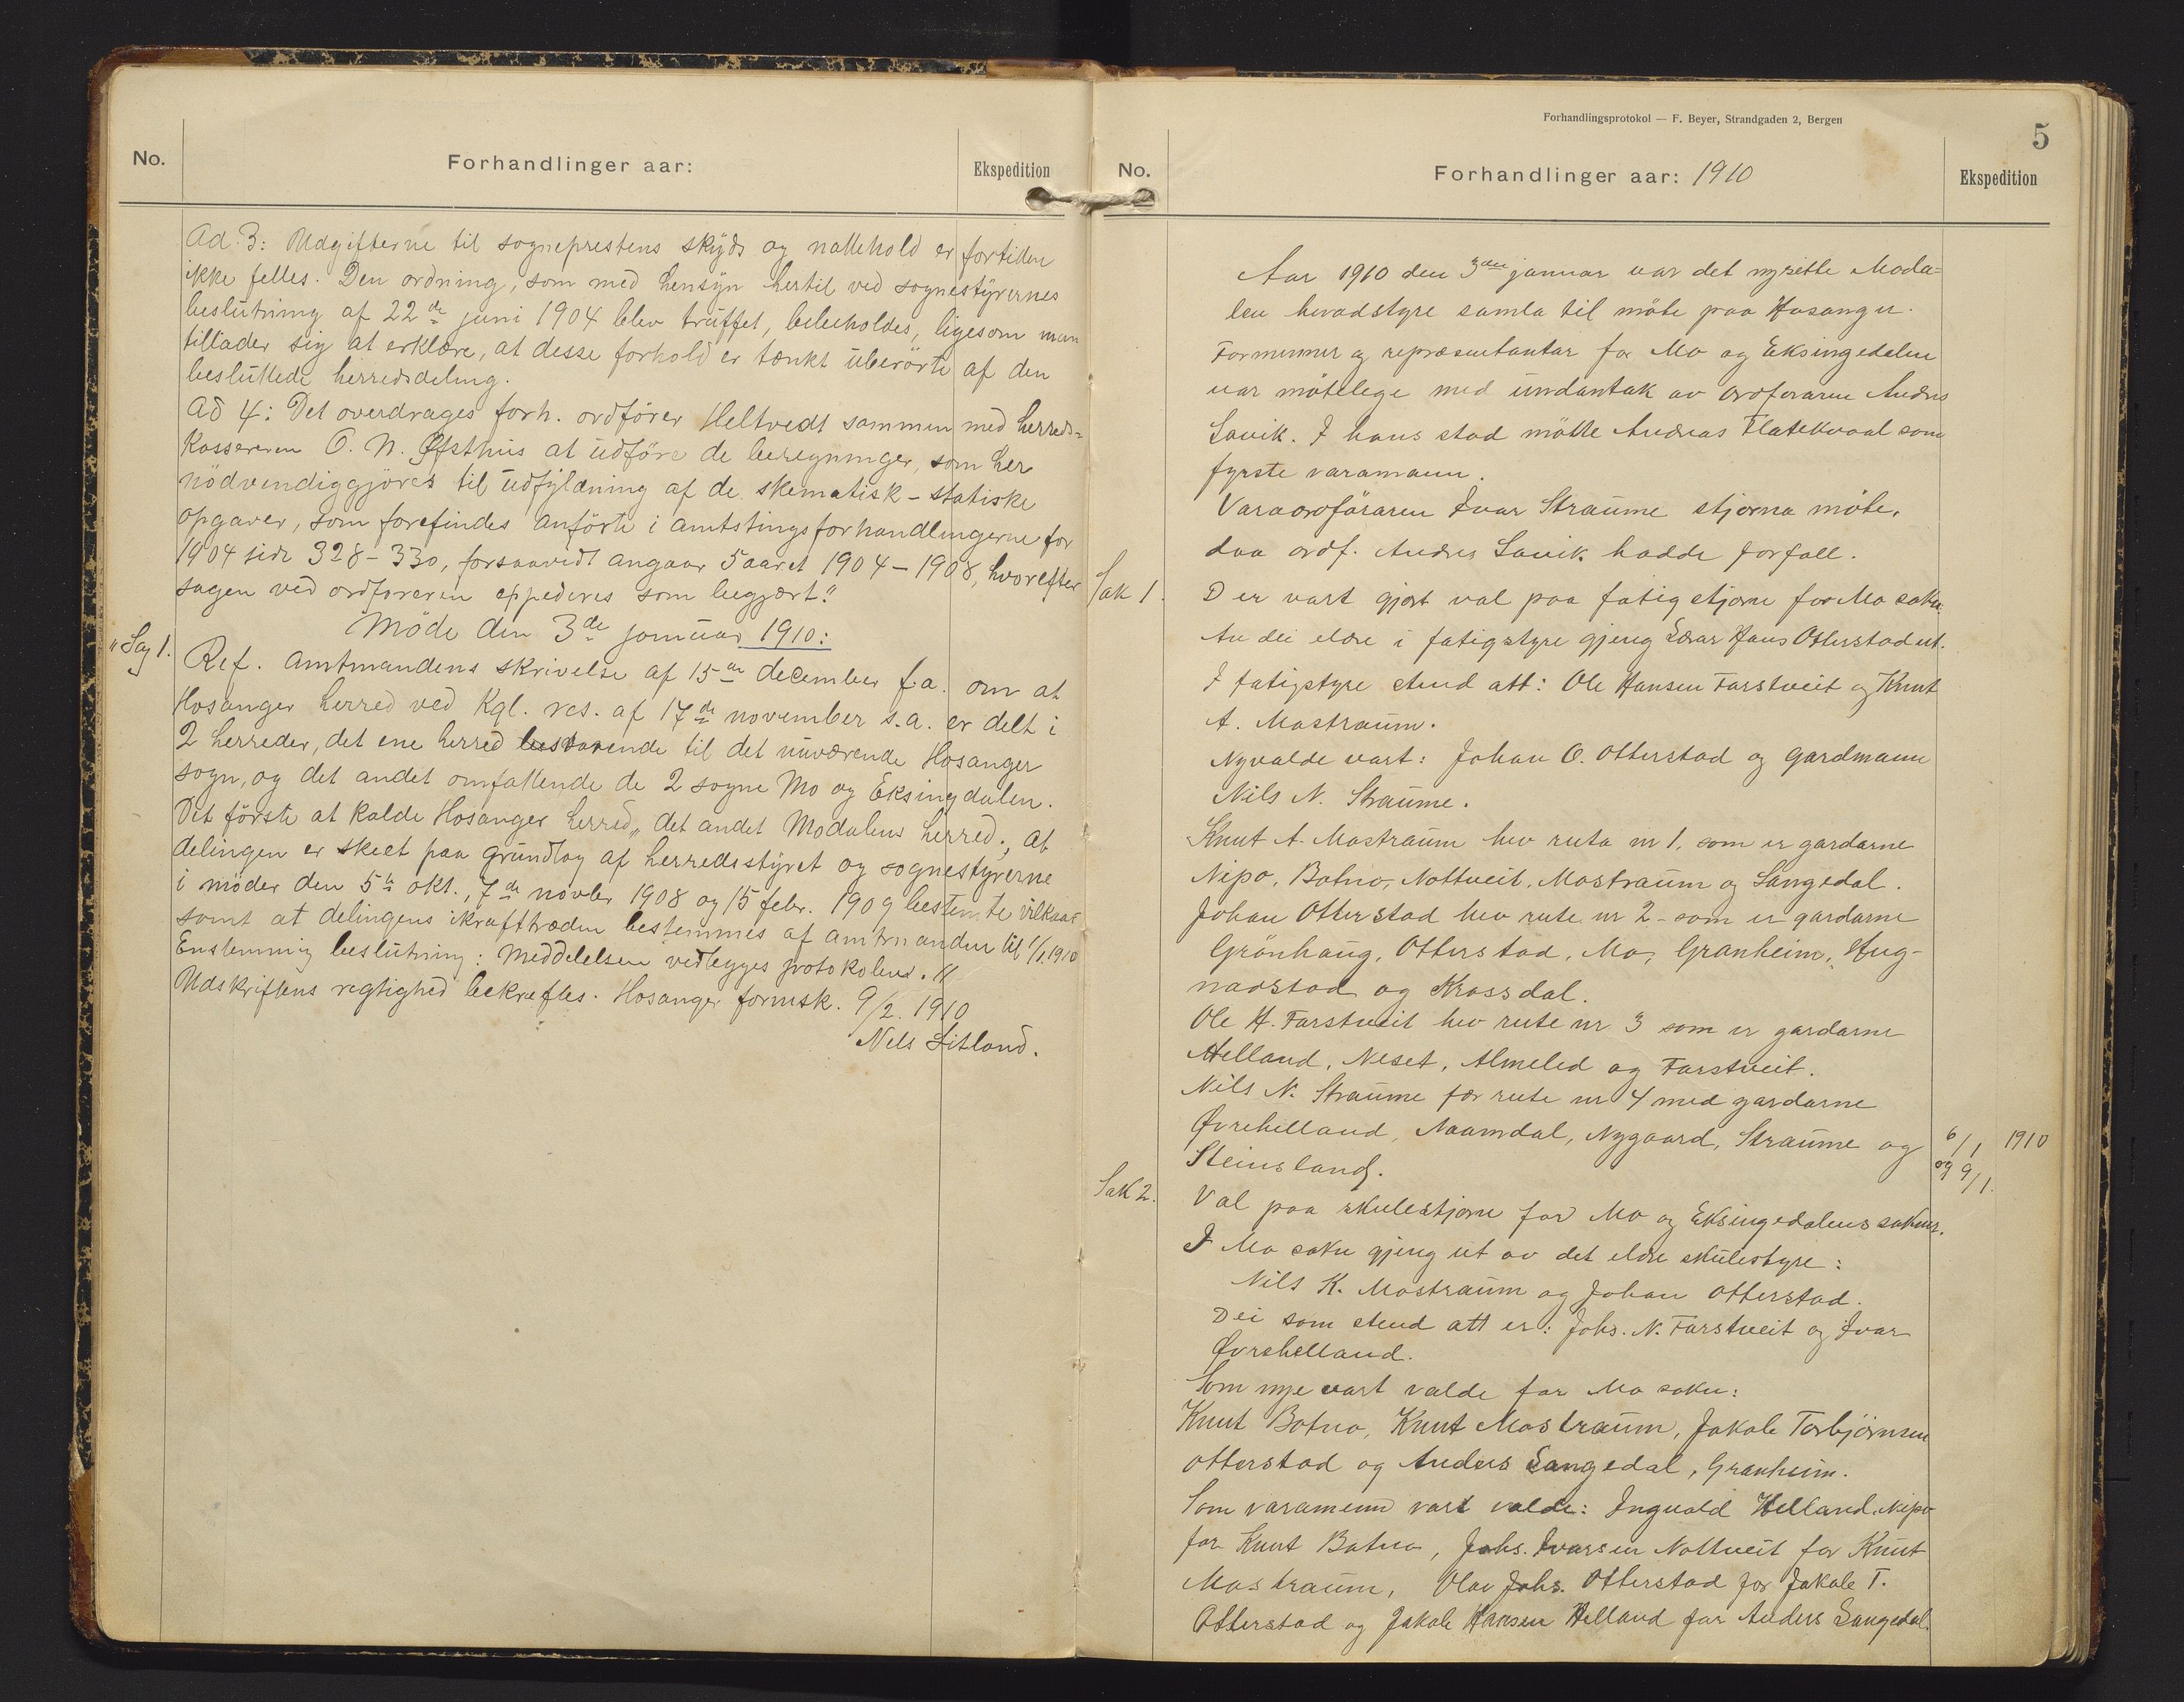 No.
Forhandlinger aar:
Ekspedition
Ad. 3: Udgifterne til sogneprestens skyds og nattehold er fortiden
ikke felles. Den ordning, som med hensyn hertil ved sognestyrernes
beslutning af 22de juni 1904 blev truffet, beibeholdes, ligesom man
tillader sig at erklære, at desse forhold er tænkt uberörte af den
besluttede herredsdeling.
Ad 4: Det overdrages forh. ordförer Heltvedt sammen med herreds-
kassereren O. N. Øfsthus at udföre de beregninger, som her
nödvendiggjöres til udfyldning af de skematisk-statiske
opgaver, som forefindes anförte i amtstingsforhandlingerne for
1904 side 328-330, forsaavidt angaar 5 aaret 1904-1908, hvorefter
sagen ved ordföreren expederes som begjært."
Möde den 3de januar 1910:
"Sag 1.
Ref. amtmandens skrivelse af 15de december f.a. om at
Hosanger herred ved Kgl. res. af 17de november s.a. er delt i
2 herreder, det ene herred bestaaende til det nuværende Hosanger
sogn, og det andet omfattende de 2 sogne Mo og Eksingdalen.
Det förste at kalde Hosanger herred, det andet Modalens herred., at
delingen er skeet paa grundlag af herredsstyret og sognestyrerne
i möder den 5te okt., 7de novbr 1908 og 15 febr. 1909 bestemte vilkaar
samt at delingens ikrafttræden bestemmes af amtmanden til 1/1 1910
Enstemmig beslutning: Meddelelsen vedlegges protokolen. "
Udskriftens rigtighed bekræftes. Hosanger formsk. 9/2. 1910
Nels Litland.
Forhandlingsprotokol — F. Beyer, Strandgaden 2, Bergen
5
No.
Forhandlinger aar: 1910
Ekspedition
Aar 1910 den 3dje januar var det nysette Moda=
len heradstyre samla til möte paa Hosanger.
Formenner og repræsentantar for Mo og Eksingedalen
var mötelege med undantak av ordföraren Andres
Lavik. I hans stad mötte Andreas Flatekvaal som
fyrste varamann.
Varaordföraren Ivar Straume stjorna möte,
daa ordf. Andres Lavik hadde forfall.
Sak 1.
Der vart gjort val paa fatigstjorn for Mo sokn.
Av dei eldre i fatigstyre gjeng Lærar Hans Otterstad ut.
I fatigstyre stend att: Ole Hansen Farstveit og Knut
A. Mostraum.
Nyvalde vart: Johan O. Otterstad og gardmann
Nils N. Straume.
Knut A. Mostraum hev ruta nr 1, som er gardarne
Nipo, Botno, Nottveit, Mostraum og Langedal.
Johan Otterstad hev rute nr 2 - som er gardarne
Grönhaug, Otterstad, Mo, Granheim, Hug-
nadstad og Krossdal.
Ole H. Farstveit hev rute nr 3 som er gardarne
Helland, Neset, Almelid og Farstveit.
Nils N. Straume fær rute nr 4 med gardarne
Øvrehelland, Naamdal, Nygaard, Straume og
Steinsland.
6/1 1910
og 9/1.
Sak 2.
Val paa skulestjorn for Mo og Eksingedalens sokner.
I Mo sokn gjeng ut av det eldre skulestyre:
Nils K. Mostraum og Johan Otterstad.
Dei som stend att er: Johs. N. Farstveit og Ivar
Øvrehelland.
Som nye vart valde for Mo sokn:
Knut Botno, Knut Mostraum, Jakob Torbjörnsen
Otterstad og Anders Langedal, Granheim.
Som varamenn vart valde: Ingvald Helland, Nipo
for Knut Botno, Johs. Ivarsen Nottveit for Knut
Mostraum, Olav Johs. Otterstad for Jakob T.
Otterstad og Jakob Hansen Helland for Anders Langedal.